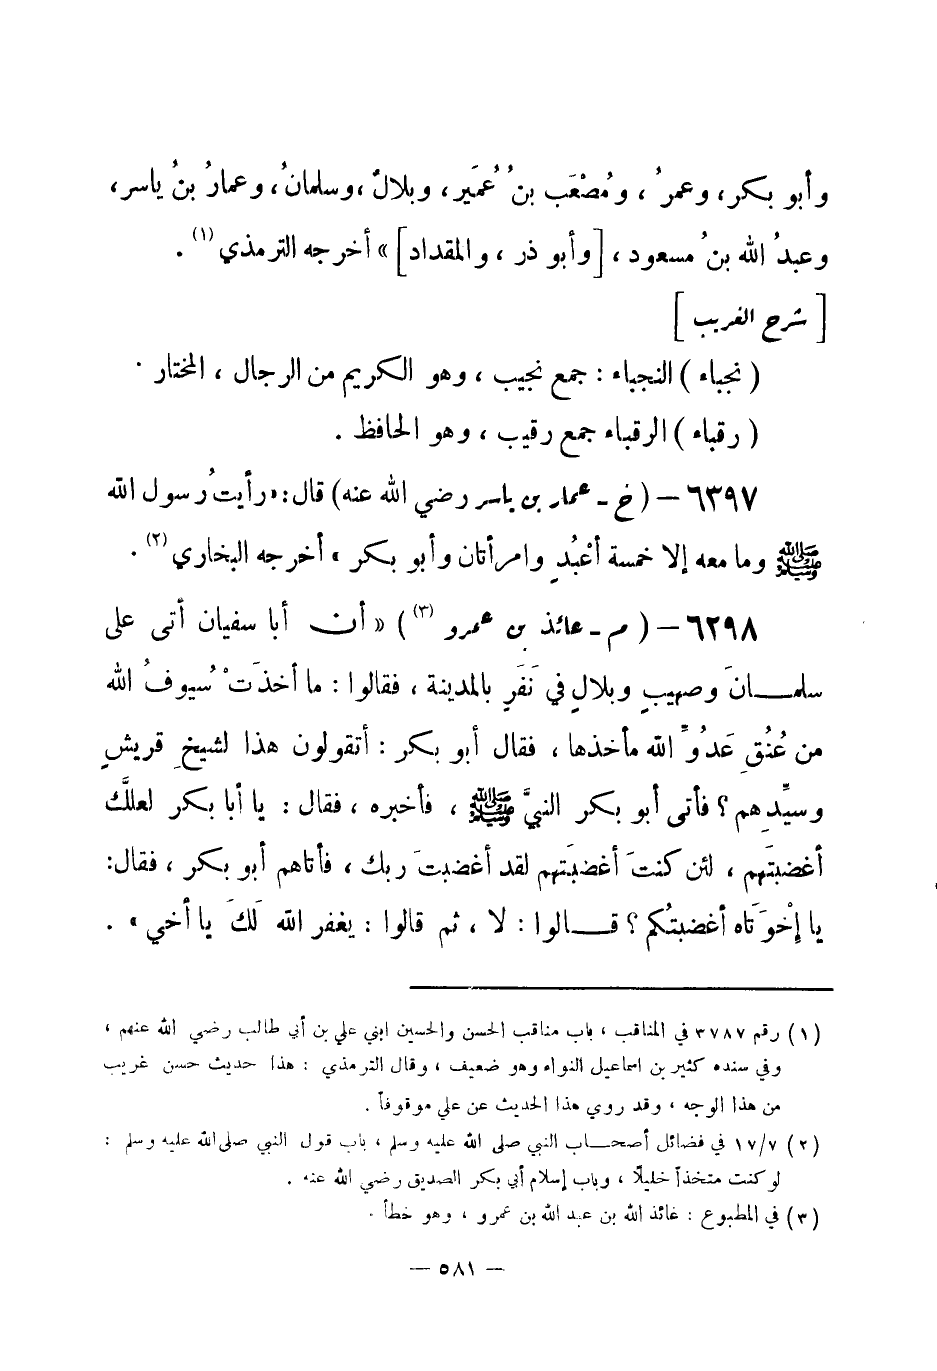 وأبو بكر، وعمرُ ، ومُصْعَب بنُ عُمَير، وبلالٌ ،وسلمانُ، وعمارُ بنُ ياسر،
وعبدُ الله بنُ مسعود ، [وأبو ذر ، والمقداد] » أخرجه الترمذي (١) .
[ شرح الغريب ]
( نجباء ) النجباء : جمع نجيب ، وهو الكريم من الرجال ، المختار .
( رقباء ) الرقباء جمع رقيب ، وهو الحافظ .
٦٣٩٧ – ( خ - عمار بن ياسر رضي الله عنه) قال: «رأيتُ رسول الله
ﷺ وما معه إلا خمسة أعْبُدٍ وامرأتان وأبو بكر » أخرجه البخاري (٢) .
٦٢٩٨ – ( م - عائذ بن عمرو (٣) ) « أن أبا سفيان أتى على
سلمــانَ وصهيبٍ وبلالٍ في نَفَرٍ بالمدينة ، فقالوا : ما أخذَتْ سُيوفُ الله
من عُنُقِ عَدُوِّ الله مأخذها ، فقال أبو بكر : أتقولون هذا لشيخِ قريشٍ
وسيِّدِهم ؟ فأتى أبو بكر النبيَّ ﷺ ، فأخبره ، فقال : يا أبا بكر لعلَّك
أغضبتَهم ، لئن كنتَ أغضبتَهم لقد أغضبتَ ربك ، فأتاهم أبو بكر ، فقال:
يا إخْوَتَاه أغضبتُكم ؟ قــالوا : لا ، ثم قالوا : يغفر الله لَكَ يا أخي » .
(١) رقم ٣٧٨٧ في المناقب ، باب مناقب الحسن والحسين ابني علي بن أبي طالب رضي الله عنهم ،
وفي سنده كثير بن اسماعيل النواء وهو ضعيف ، وقال الترمذي : هذا حديث حسن غريب
من هذا الوجه ، وقد روي هذا الحديث عن علي موقوفاً .
(٢) ١٧/٧ في فضائل أصحــاب النبي صلى الله عليه وسلم ، باب قول النبي صلى الله عليه وسلم :
لو كنت متخذاً خليلًا ، وباب إسلام أبي بكر الصديق رضي الله عنه .
(٣) في المطبوع : عائذ الله بن عبد الله بن عمرو ، وهو خطأ .
– ٥٨١ –